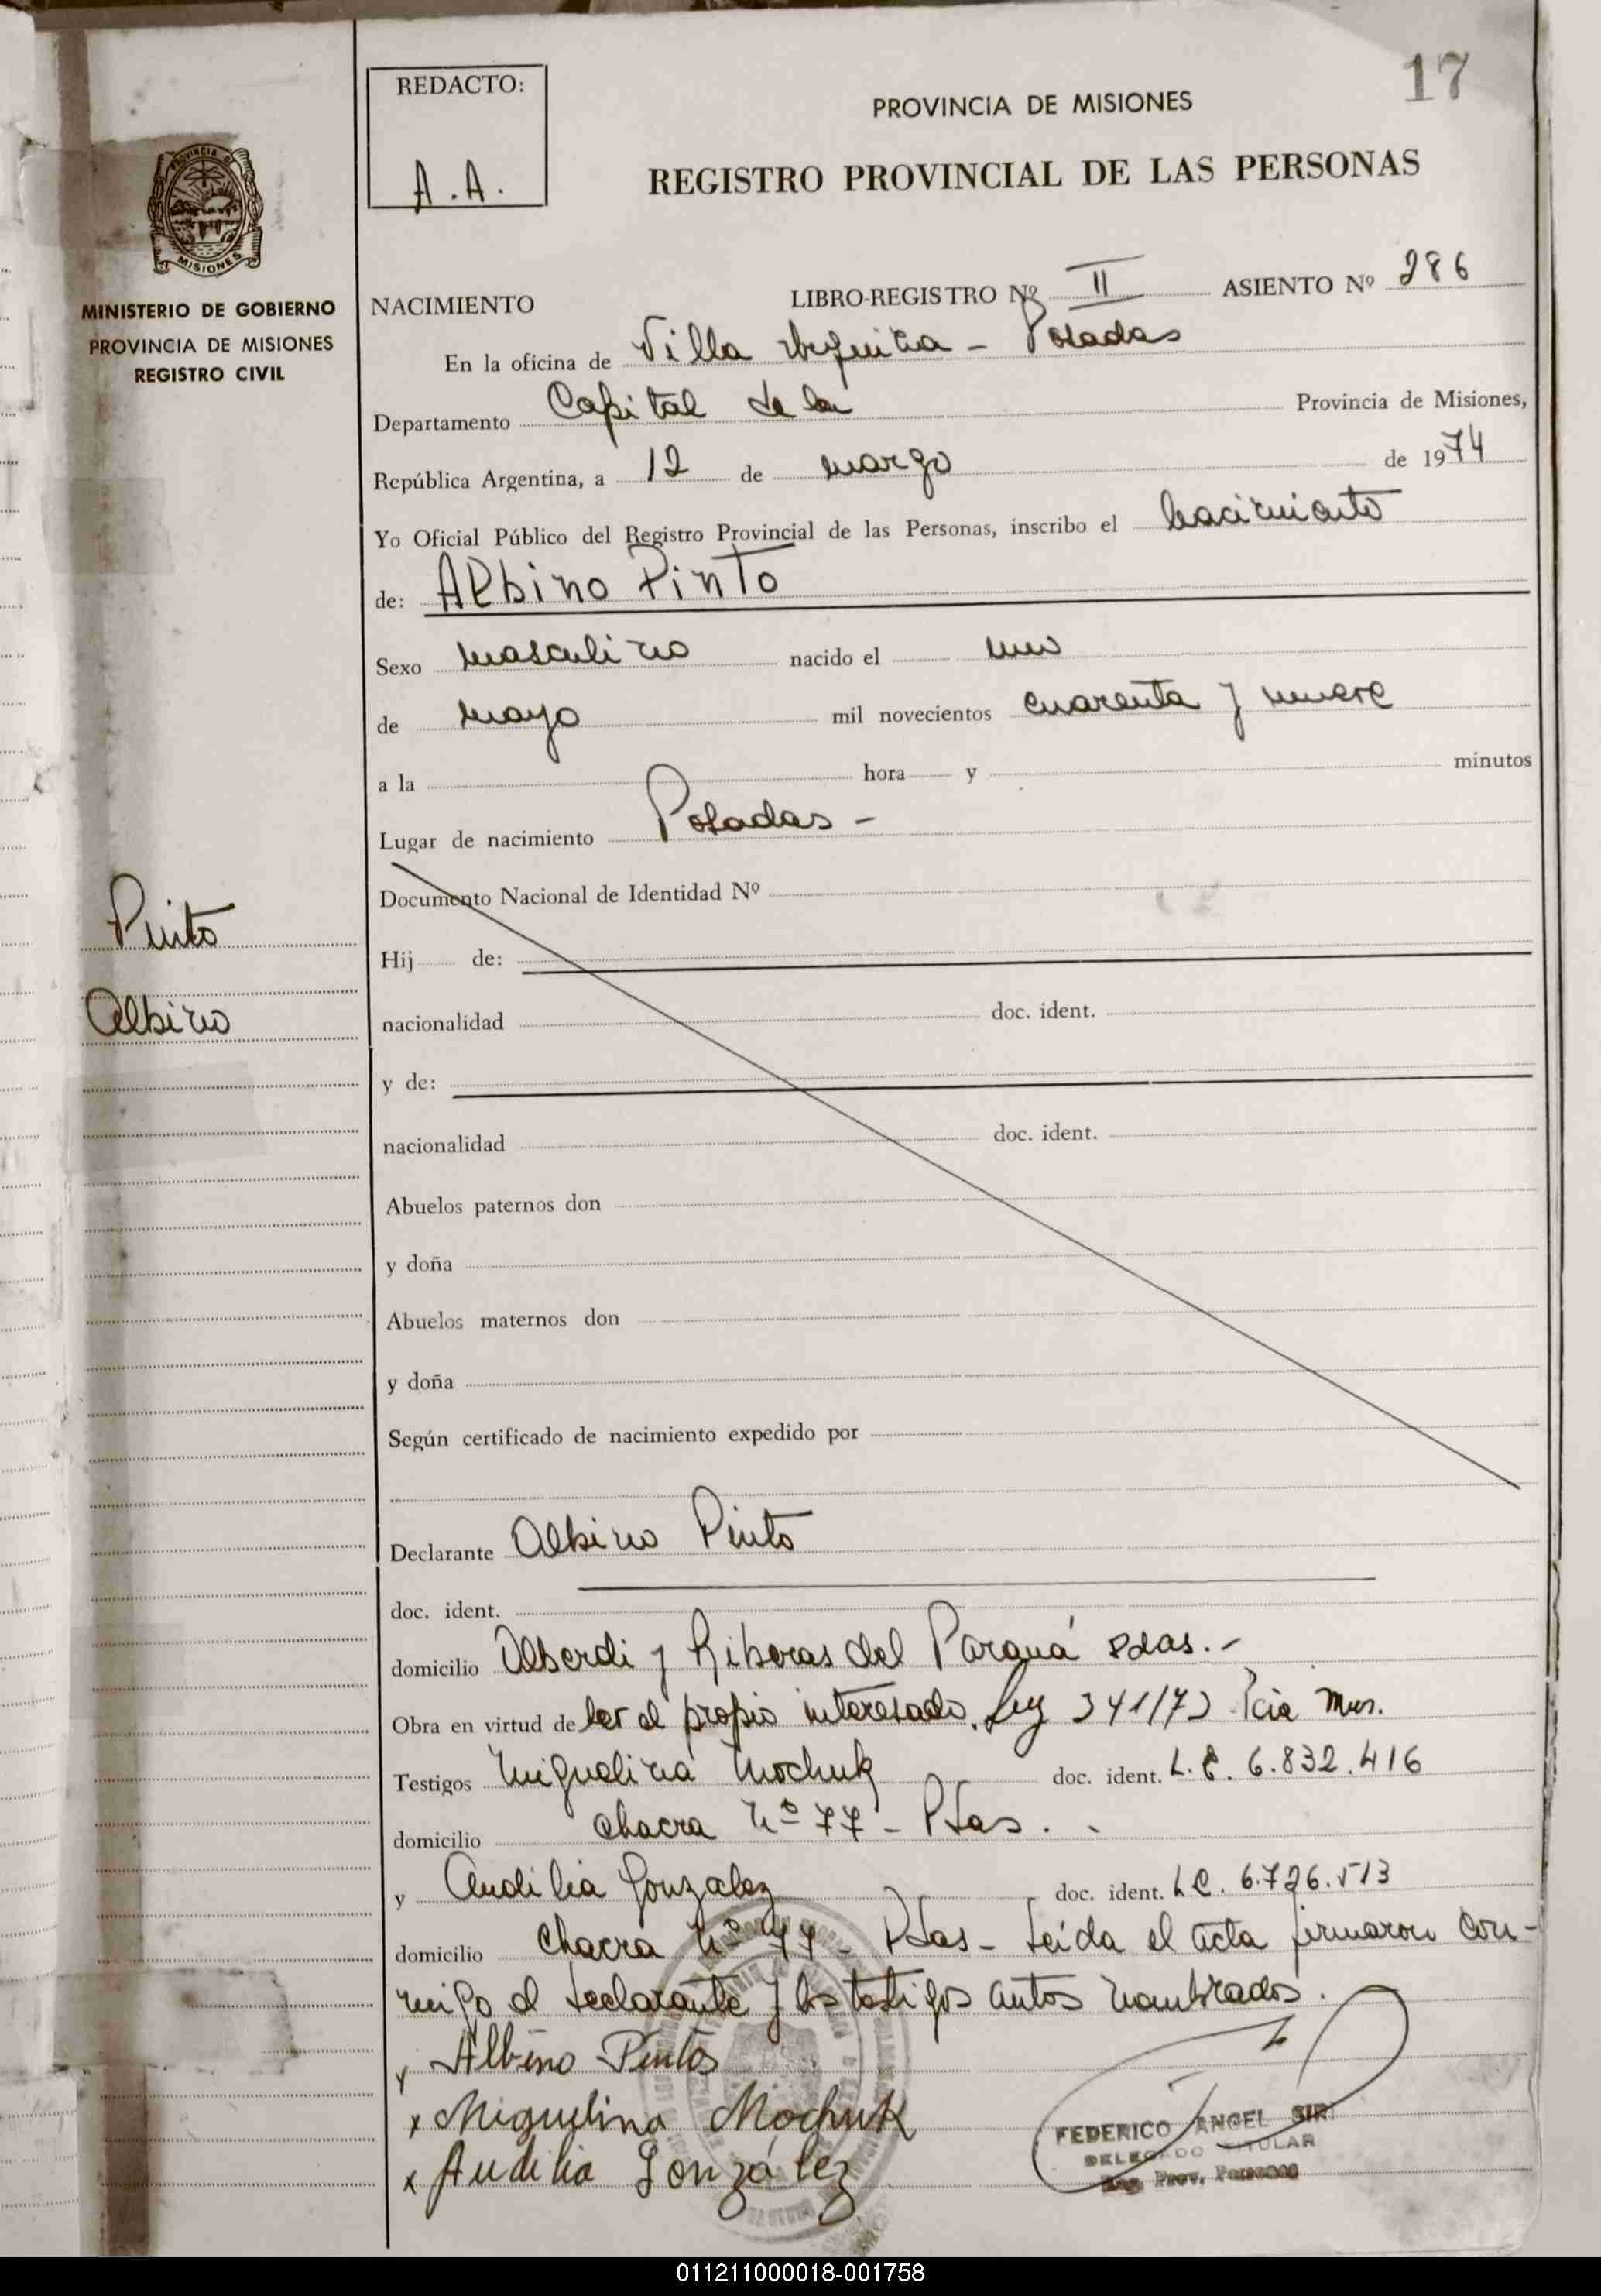 17
REDACTO:
A.A.
PROVINCIA DE MISIONES
REGISTRO PROVINCIAL DE LAS PERSONAS
PROVINCIA DE
MISIONES
MINISTERIO DE GOBIERNO
PROVINCIA DE MISIONES
REGISTRO CIVIL
NACIMIENTO LIBRO-REGISTRO Nº II ASIENTO Nº 286
En la oficina de Villa Urquiza - Posadas
Departamento Capital de la Provincia de Misiones,
República Argentina, a 12 de marzo de 1974
Yo Oficial Público del Registro Provincial de las Personas, inscribo el nacimiento
de: Albino Pinto
Sexo masculino nacido el uno
de mayo mil novecientos cuarenta y nueve
a la hora y minutos
Lugar de nacimiento Posadas -
Documento Nacional de Identidad Nº
Pinto
Hij de:
Albino
nacionalidad doc. ident.
y de:
nacionalidad doc. ident.
Abuelos paternos don
y doña
Abuelos maternos don
y doña
Según certificado de nacimiento expedido por
Declarante Albino Pinto
doc. ident.
domicilio Alberdi y Riberas del Paraná Pdas. -
Obra en virtud de ser el propio interesado. Ley 341/73 Pcia Mnes.
Testigos Miguelina Mochuk doc. ident. L.C. 6.832.416
domicilio Chacra Nº 77 - Pdas. -
y Audilia Gonzalez doc. ident. L.C. 6.726.513
domicilio Chacra Nº 77 - Pdas - Leída el acta firmaron con-
migo el declarante y los testigos antes nombrados.
Albino Pintos
x Miguelina Mochuk
x Audilia González
FEDERICO ANGEL SIRI
DELEGADO TITULAR
Reg. Prov. Personas
011211000018-001758